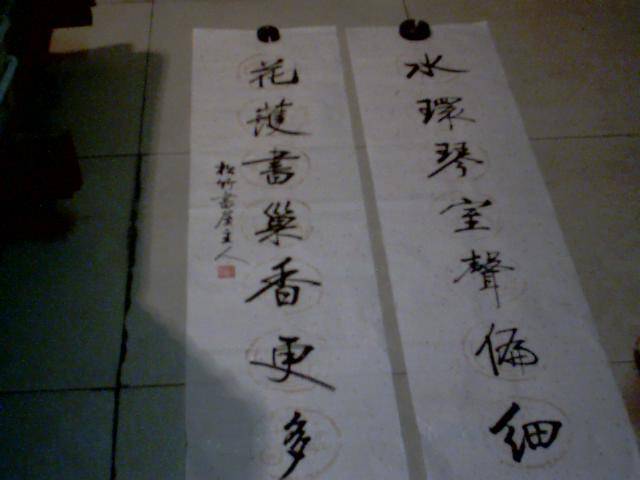 水環琴室聲偏細
花護書巢香更多
松竹書屋主人